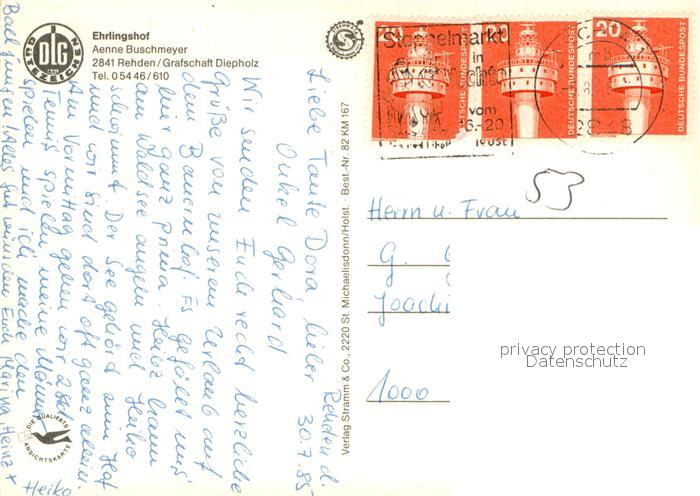 DLG
GÜTEZEICHEN
Ehrlingshof
Aenne Buschmeyer
2841 Rehden/Grafschaft Diepholz
Tel. 0 54 46 / 610
Rehden d.
30.7.85
Liebe Tante Dora, lieber
Onkel Gerhard
Wir senden Euch recht herzliche
Grüße von unserem Urlaub auf
dem Bauernhof. Es gefällt uns
hier ganz prima. Heinz kann
am Waldsee angeln und Heiko
schwimmt. Der See gehört zum Hof
und wir sind dort oft ganz allein.
Am Vormittag gehen wir
Tennis spielen, meine Männer
spielen und ich mache den
Ball jungen! Alles gut wünschen Euch Marina, Heinz +
Heiko
DIE QUALITÄTS
ANSICHTSKARTE
Verlag Stramm & Co., 2220 St. Michaelisdonn/Holst. · Best.-Nr. 82 KM 167
20
DEUTSCHE BUNDESPOST
20
DEUTSCHE BUNDESPOST
20
DEUTSCHE BUNDESPOST
Stoppelmarkt
in
vom
53
Herrn u. Frau
G.
Joachi
1000
privacy protection
Datenschutz